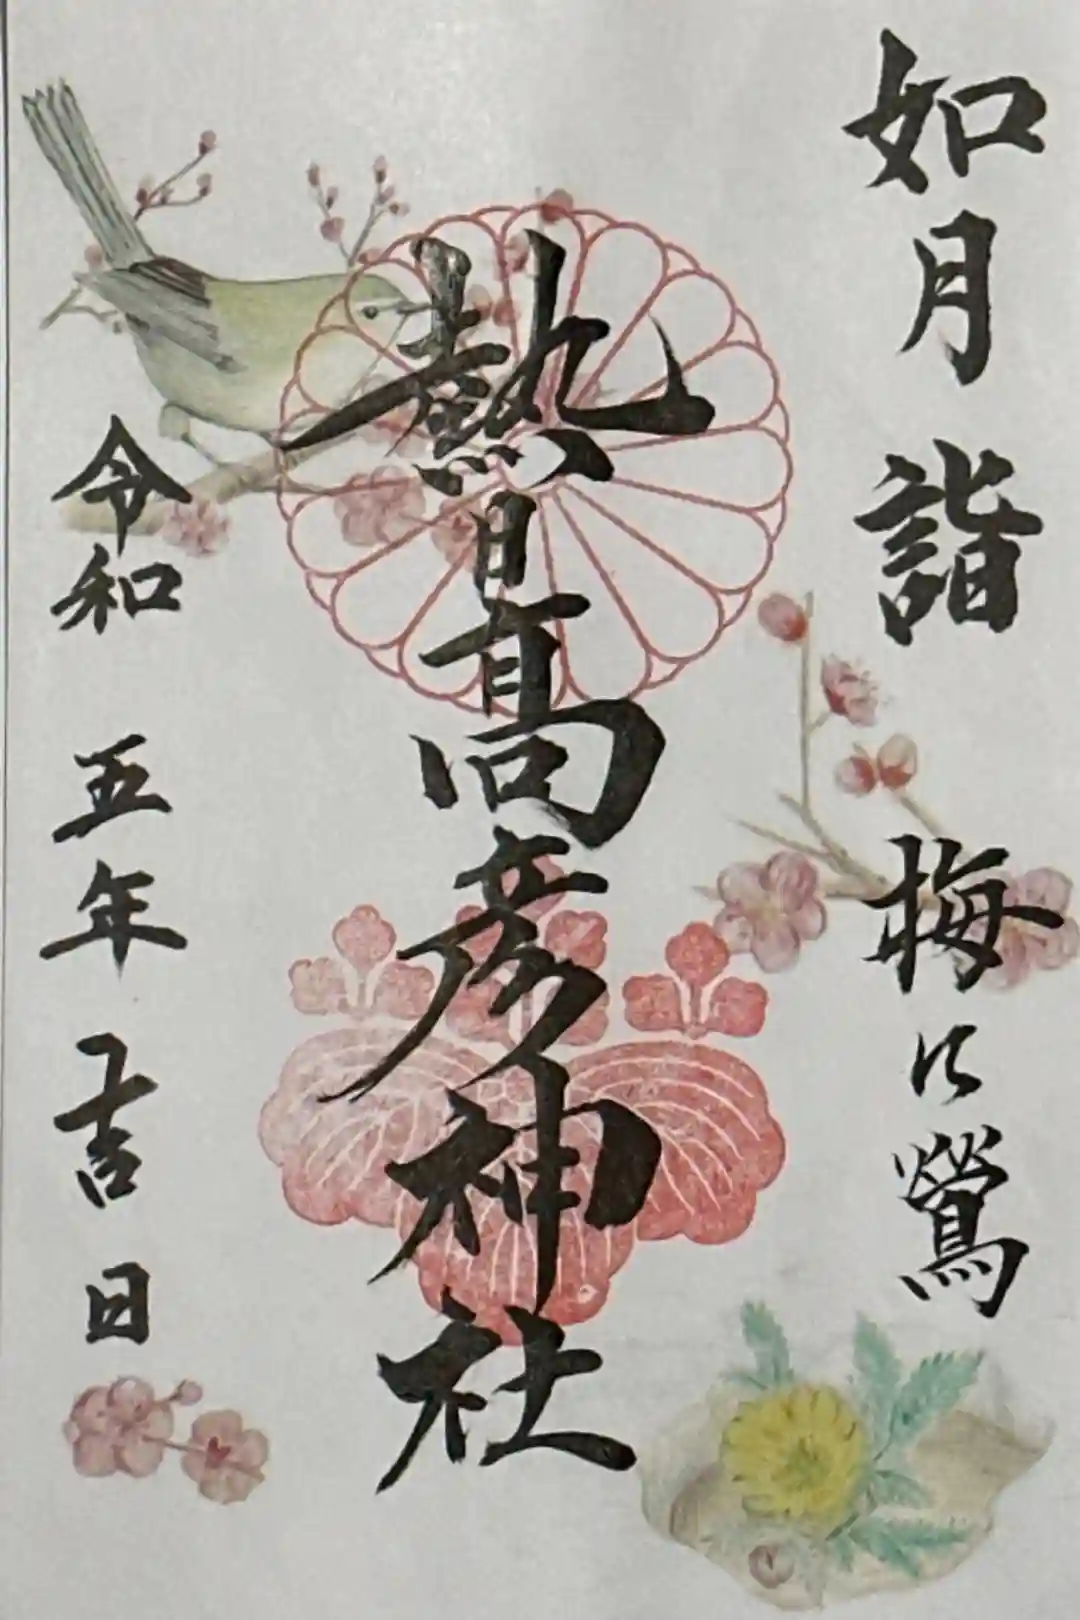 如月詣 梅に鶯
熱日高彦神社
令和五年 吉日